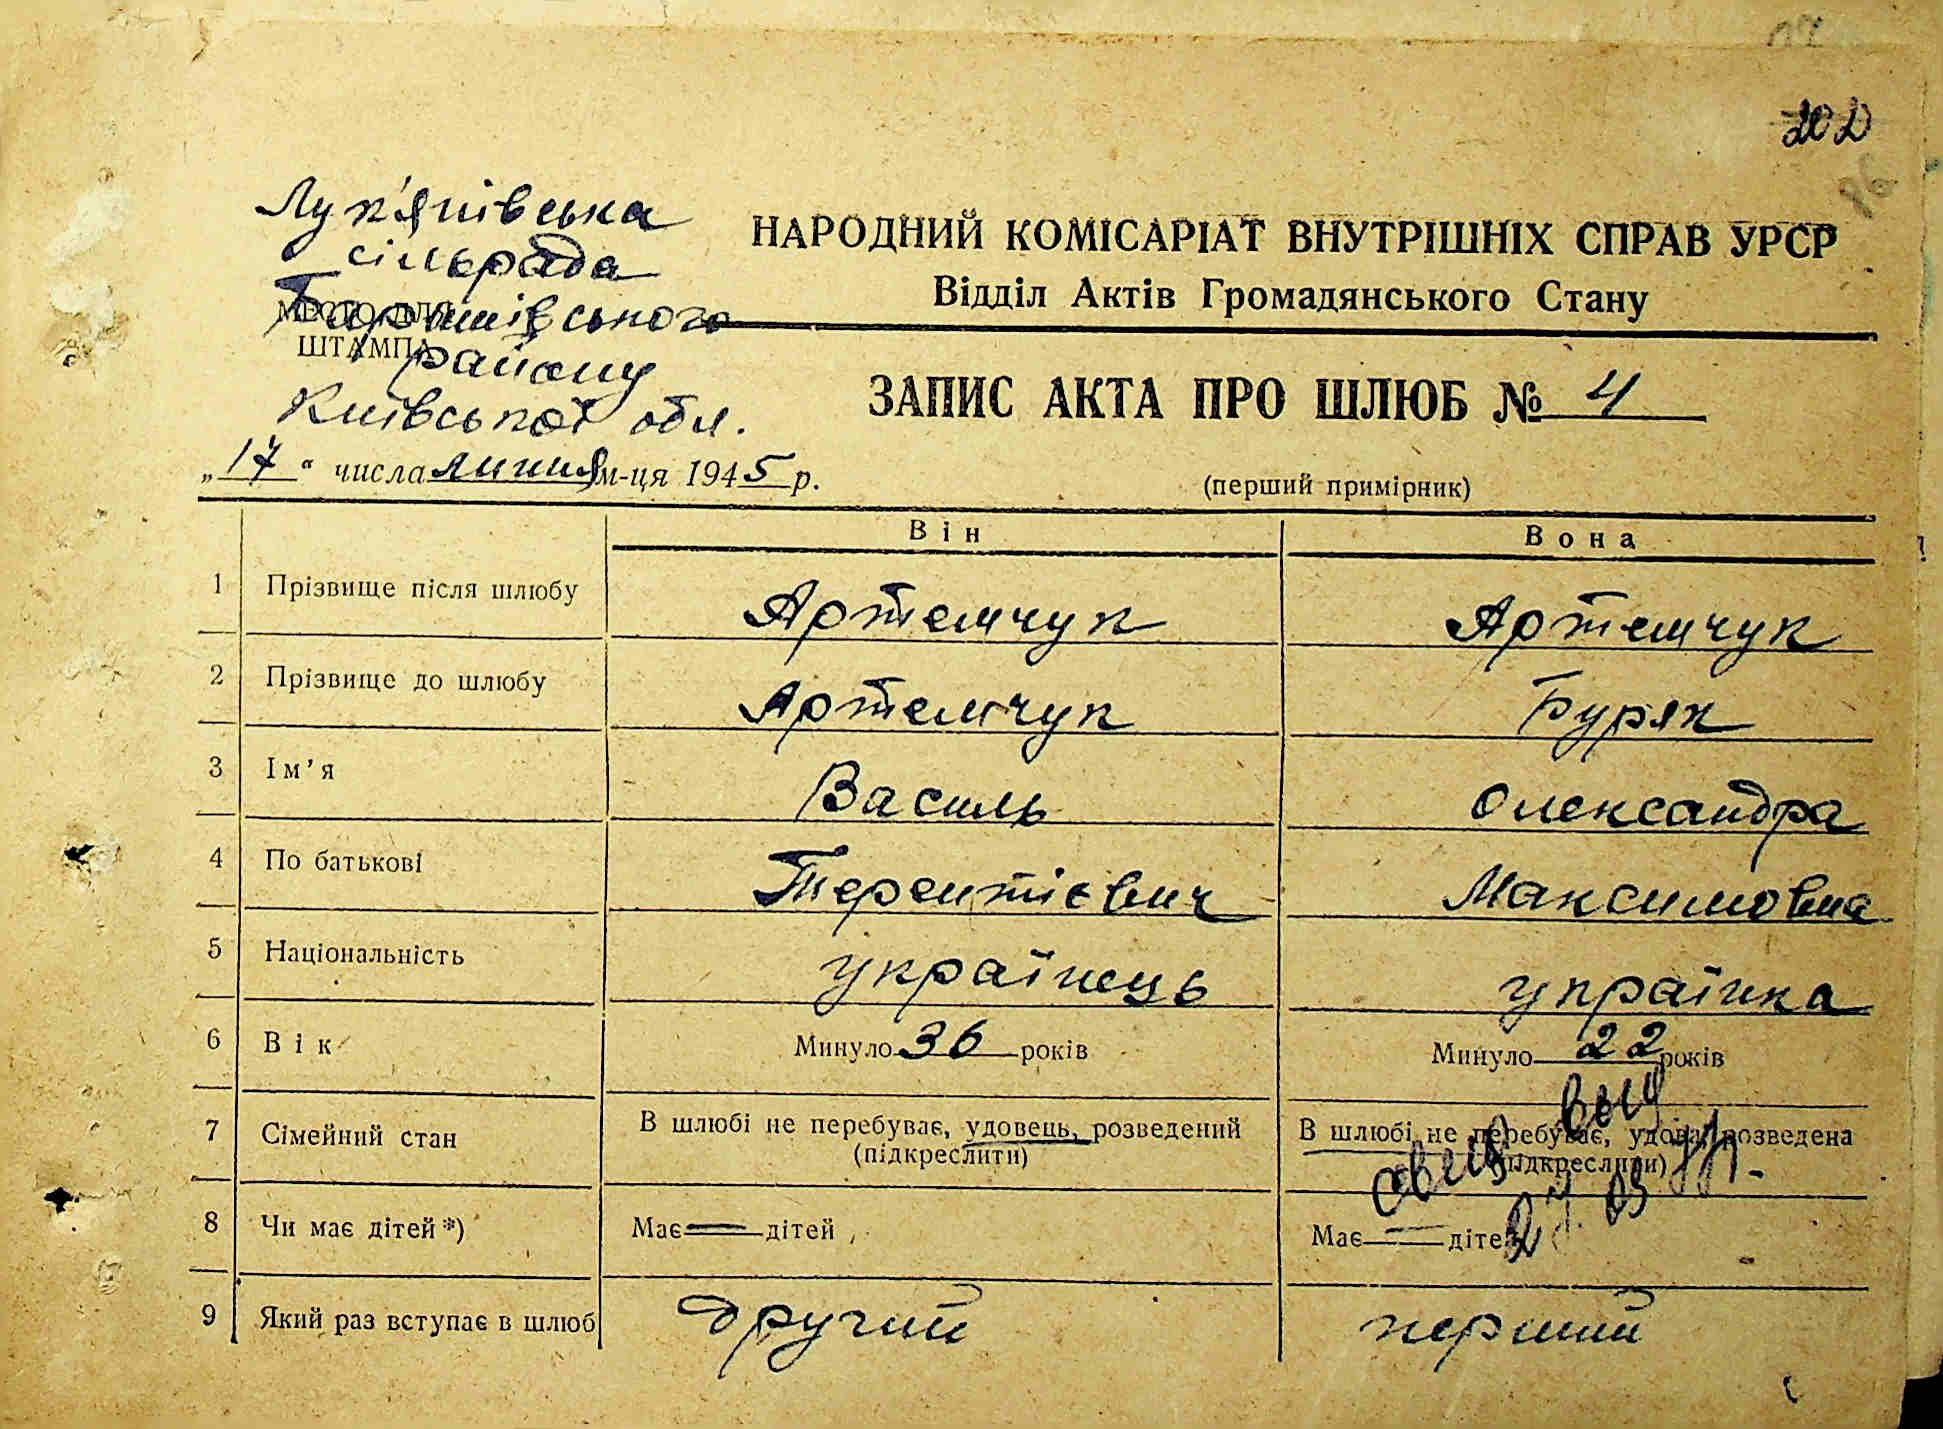 202
Лук'янівська
сільрада
Баришівського
району
Київської обл.
МЕСТО ДЛЯ
ШТАМПА
НАРОДНИЙ КОМІСАРІАТ ВНУТРІШНІХ СПРАВ УРСР
Відділ Актів Громадянського Стану
ЗАПИС АКТА ПРО ШЛЮБ № 4
„17“ числа липня м-ця 1945 р.
(перший примірник)
Він Вона
1 Прізвище після шлюбу Артемчук Артемчук
2 Прізвище до шлюбу Артемчук Буряк
3 Ім'я Василь Олександра
4 По батькові Терентієвич Максимовна
5 Національність українець українка
6 Вік Минуло 36 років Минуло 22 років
7 Сімейний стан В шлюбі не перебуває, удовець, розведений В шлюбі не перебуває, удова, розведена
(підкреслити) (підкреслити)
8 Чи має дітей *) Має — дітей Має — дітей
9 Який раз вступає в шлюб другий перший